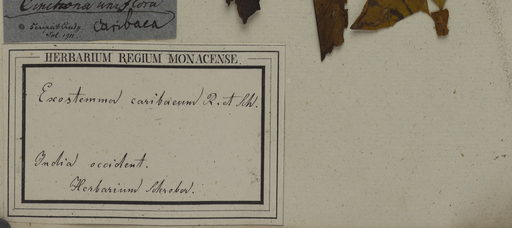 Cinchona uniflora
caribaea
HERBARIUM REGIUM MONACENSE.
Exostemma caribaeum R. et Sch.
India occident.
Herbarium Schreber.